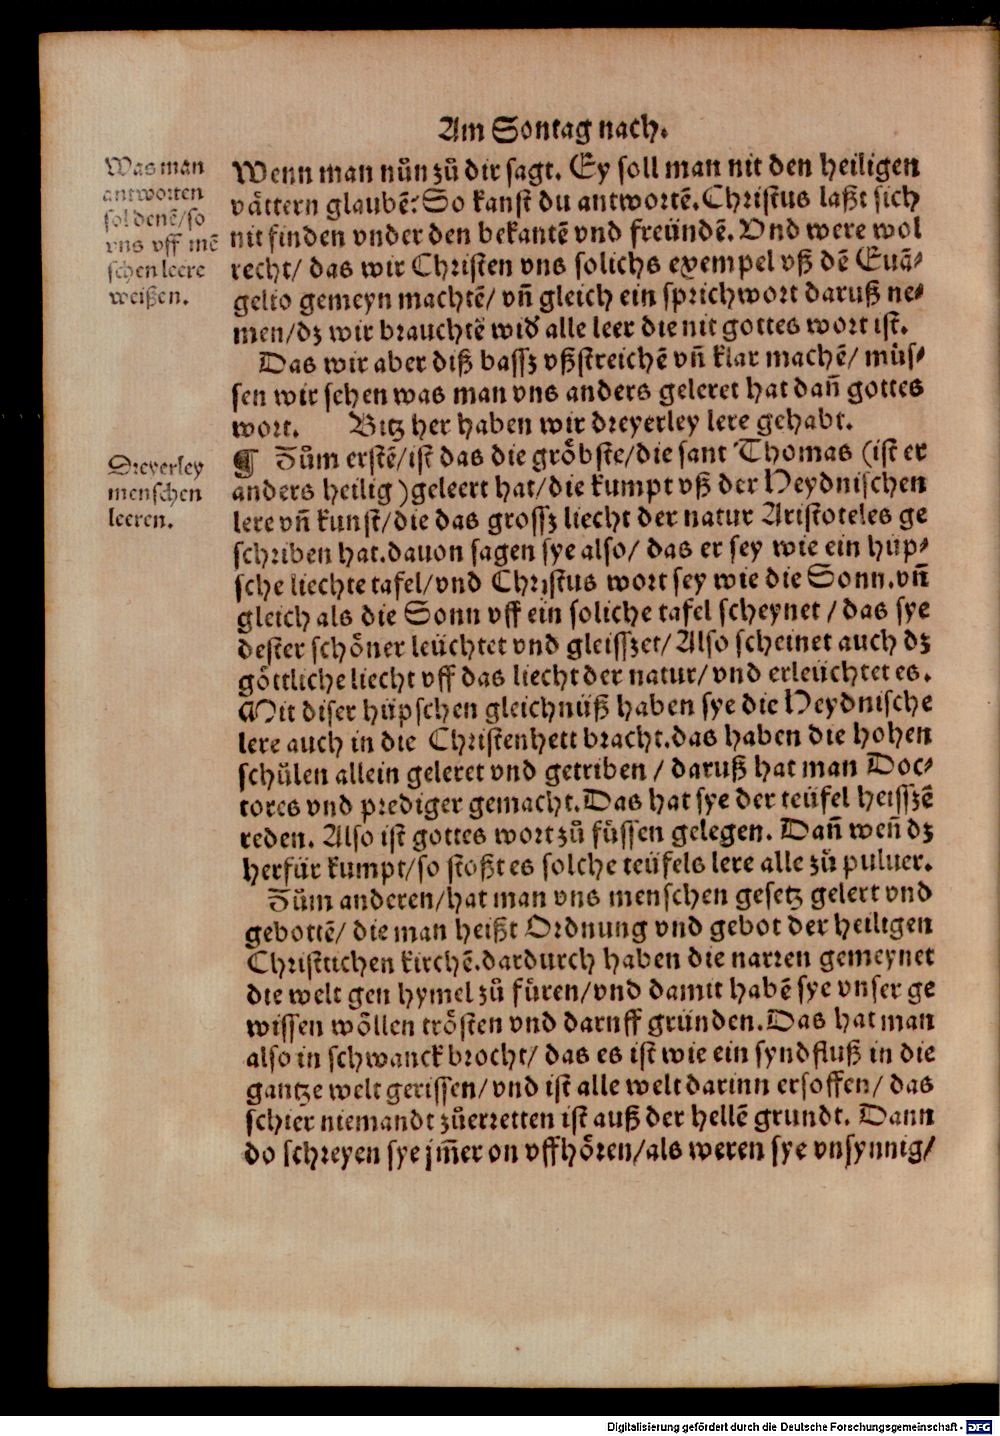 Am Sontag nach.
Was man
antworten
sol denē/so
vns vff mē
schen leere
weißen.
Wenn man nůn zů dir sagt. Ey soll man nit den heiligen
vättern glaubē: So kanst du antwortē. Christus laßt sich
nit finden vnder den bekantē vnd freündē. Vnd were wol
recht/ das wir Christen vns solichs exempel vß dē Euā-
gelio gemeyn machtē/ vn̄ gleich ein sprichwort daruß ne-
men/dz wir brauchtē wid alle leer die nit gottes wort ist.
Das wir aber diß bassz vßstreichē vn̄ klar machē/ müs-
sen wir sehen was man vns anders geleret hat dan̄ gottes
wort. Bitz her haben wir dreyerley lere gehabt.
Dreyerley
menschen
leeren.
¶ Zům erstē/ist das die gröbste/die sant Thomas (ist er
anders heilig) geleert hat/die kumpt vß der Heydnischen
lere vn̄ kunst/die das grossz liecht der natur Aristoteles ge
schriben hat. dauon sagen sye also/ das er sey wie ein hüp-
sche liechte tafel/vnd Christus wort sey wie die Sonn. vn̄
gleich als die Sonn vff ein soliche tafel scheynet/das sye
dester schöner leüchtet vnd gleisszet/ Also scheinet auch dz
göttliche liecht vff das liecht der natur/ vnd erleüchtet es.
Mit diser hüpschen gleichnüß haben sye die Heydnische
lere auch in die Christenheit bracht. das haben die hohen
schůlen allein geleret vnd getriben/ daruß hat man Doc-
tores vnd prediger gemacht. Das hat sye der teüfel heisszē
reden. Also ist gottes wort zů füssen gelegen. Dan̄ wen̄ dz
herfür kumpt/so stoßt es solche teüfels lere alle zů puluer.
Zům anderen/hat man vns menschen gesetz gelert vnd
gebottē/ die man heißt Ordnung vnd gebot der heiligen
Christlichen kirchē. dardurch haben die narren gemeynet
die welt gen hymel zů füren/vnd damit habē sye vnser ge
wissen wöllen trösten vnd daruff gründen. Das hat man
also in schwanck brocht/ das es ist wie ein syndfluß in die
gantze welt gerissen/vnd ist alle welt darinn ersoffen/ das
schier niemandt zůerretten ist auß der hellē grundt. Dann
do schreyen sye jm̄er on vffhören/als weren sye vnsynnig/
Digitalisierung gefördert durch die Deutsche Forschungsgemeinschaft - DFG